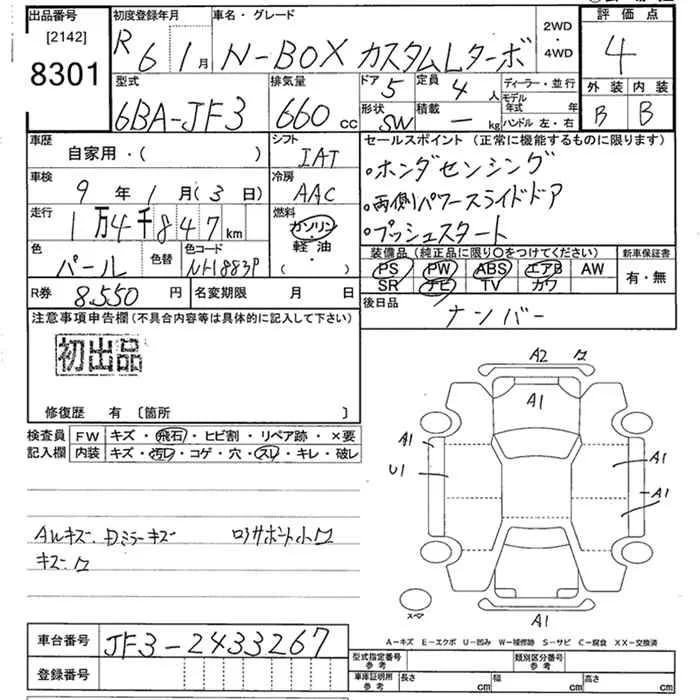 出品番号 [2142] 8301
初度登録年月 R 6年 1月
車名・グレード N-BOX カスタムLターボ
2WD・4WD
評価点 4
外装 B 内装 B
型式 6BA-JF3
排気量 660cc
ドア 5 定員 4人
形状 SW 積載 - kg
ディーラー・並行
モデル年式 年
ハンドル 左・右
車歴 自家用・( )
シフト IAT
車検 9年 1月 (3日)
冷房 AAC
走行 1万4千847km
燃料 ガソリン・軽油・( )
色 パール 色替 色コード NH883P
R券 8,550円 名変期限 月 日
セールスポイント (正常に機能するものに限ります)
・ホンダセンシング
・両側パワースライドドア
・プッシュスタート
装備品(純正品に限り〇をつけてください)
PS PW ABS エアB AW
SR ナビ TV カワ
新車保証書 有・無
後日品 ナンバー
注意事項申告欄(不具合内容等は具体的に記入して下さい)
初出品
修復歴 有 〔箇所 〕
検査員記入欄
FW キズ・飛石・ヒビ割・リペア跡・×要
内装 キズ・汚レ・コゲ・穴・スレ・キレ・破レ
AWキズ. Dミラーキズ
ロアサポート小
キズ
A2
A1
A1
U1
A1
A1
A1
スペア
A-キズ E-エクボ U-凹み W-補修跡 S-サビ C-腐食 XX-交換済
車台番号 JF3-2433267
登録番号
型式指定番号 参考
類別区分番号 参考
車庫証明用 参考 長さ cm 幅 cm 高さ cm